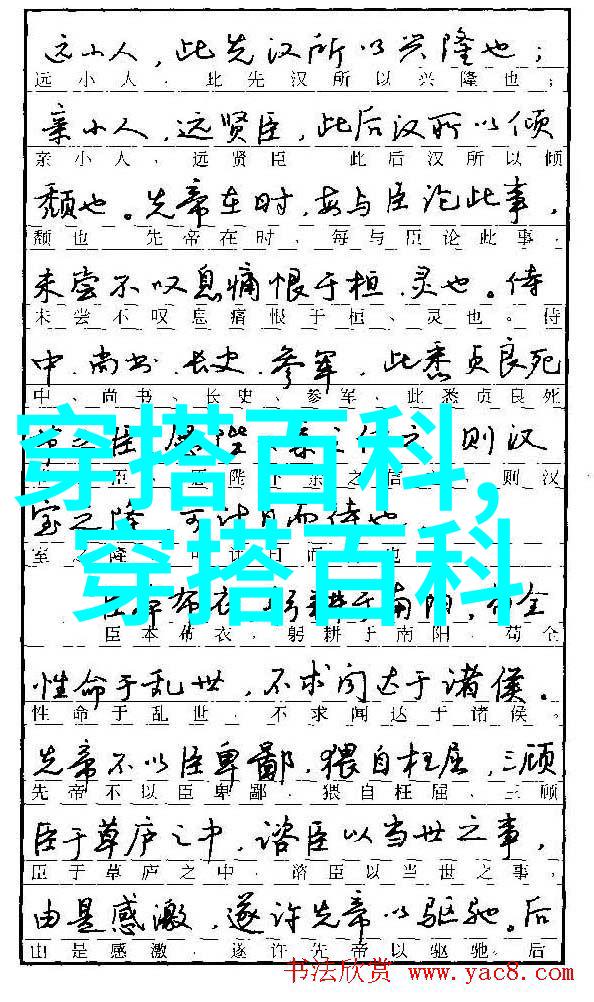 远小人，此先汉所以兴隆也；
远小人，此先汉所以兴隆也；
亲小人，远贤臣，此后汉所以倾
亲小人、远贤臣 此后汉所以倾
颓也。先帝在时，每与臣论此事，
颓也 先帝在时，每与臣论此事，
未尝不叹息痛恨于桓、灵也。侍
未尝不叹息痛恨于桓、灵也。侍
中、尚书、长史、参军，此悉贞良死
中、尚书、长史、参军、此悉贞良死
之臣 愿陛 亲之信之 则汉
臣，愿陛下亲之信 ，则汉
穿搭百科,
室之隆 可计日而待也
室之隆 可计日而 也
穿搭百科
臣本布衣 躬耕于南阳，苟全
臣本布衣，躬耕于南阳，苟全
性命于乱世，不求闻达于诸侯。
性命于乱世，不求闻达于诸侯。
先帝不以臣卑鄙，猥自枉屈，三顾
先帝不以臣卑鄙，猥自枉屈、三顾
臣于草庐之中，谘臣以当世之事，
臣于草庐之中，谘臣以当世之事，
由是感激，遂许先帝以驱驰。后
由是感激，遂许先帝以驱驰。后
书法欣赏 www.yac8.com